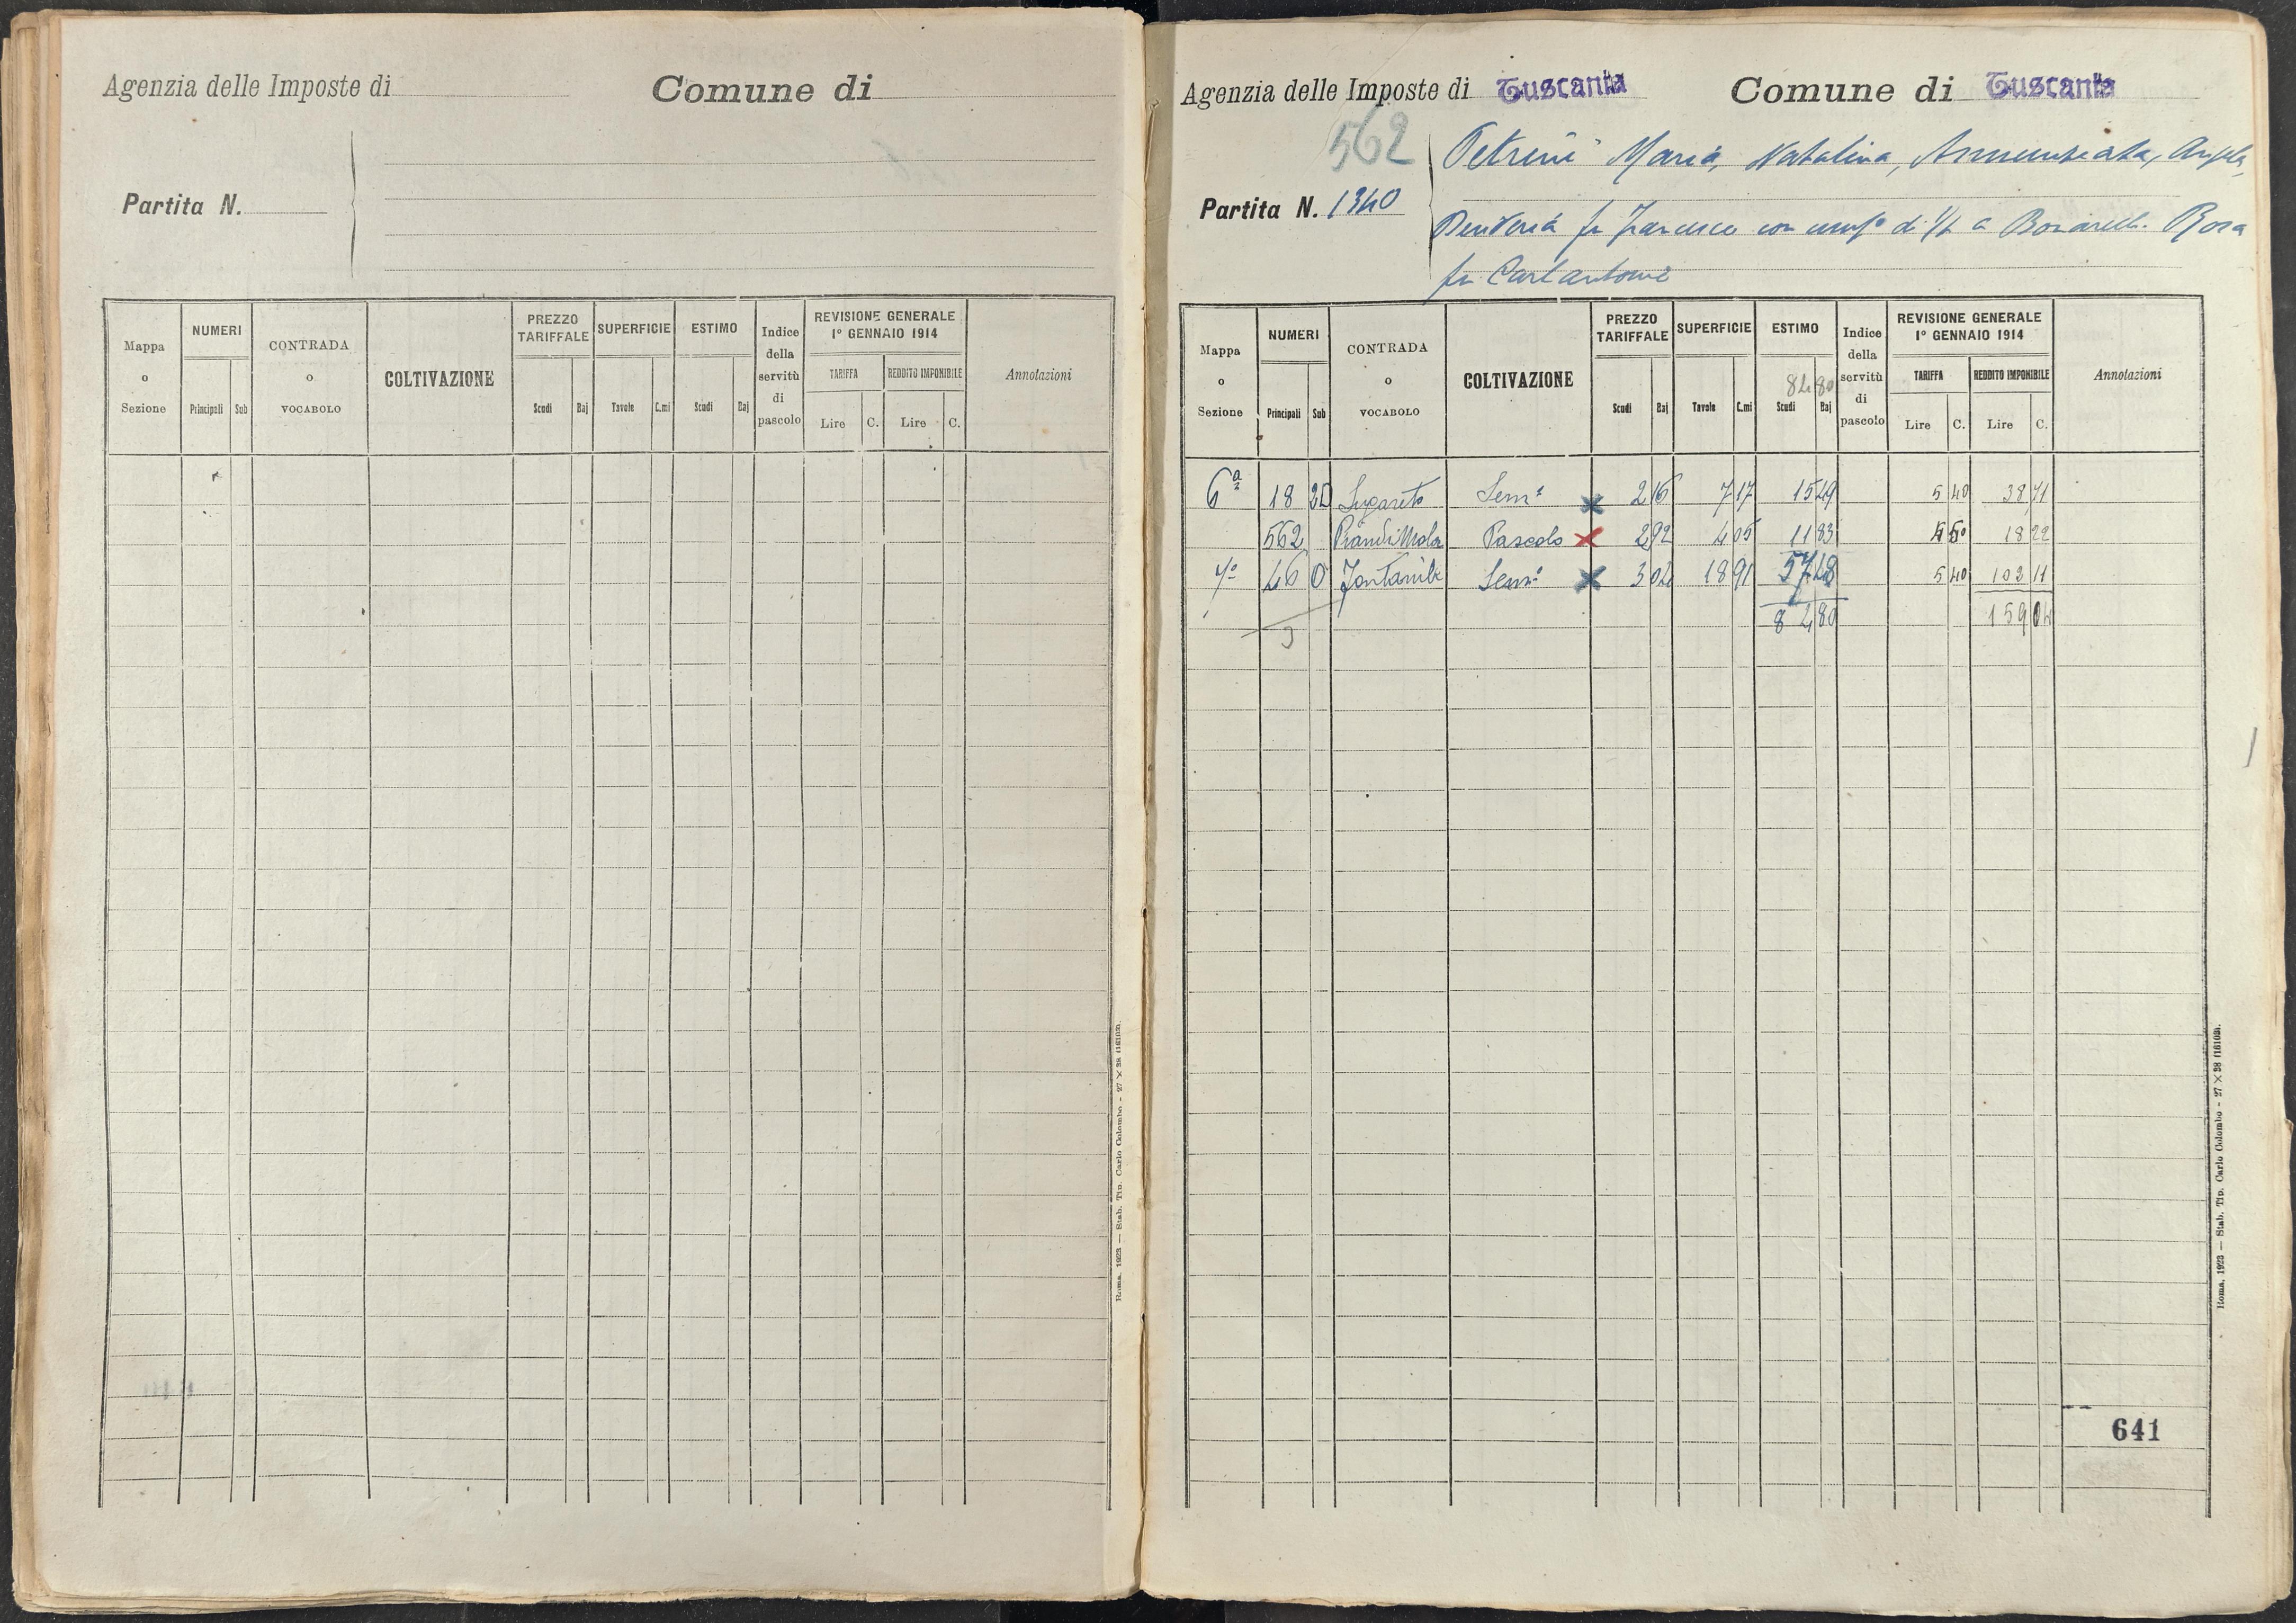 Agenzia delle Imposte di
Comune di
Partita N.
Mappa o Sezione
NUMERI
Principali
Sub
CONTRADA o VOCABOLO
COLTIVAZIONE
PREZZO TARIFFALE
Scudi
Baj
SUPERFICIE
Tavole
C.mi
ESTIMO
Scudi
Baj
Indice della servitù di pascolo
REVISIONE GENERALE 1° GENNAIO 1914
TARIFFA
Lire
C.
REDDITO IMPONIBILE
Lire
C.
Annotazioni
Roma, 1923 — Stab. Tip. Carlo Colombo - 27 × 38 (16103).
Agenzia delle Imposte di Tuscania
Comune di Tuscania
562
Partita N. 1340
Petrini Maria, Natalina, Annunziata, Angela,
fu Francesco con usufo di 1/2 a Bonarelli Rosa
fu Carlantonio
Mappa o Sezione
NUMERI
Principali
Sub
CONTRADA o VOCABOLO
COLTIVAZIONE
PREZZO TARIFFALE
Scudi
Baj
SUPERFICIE
Tavole
C.mi
ESTIMO
84 80
Scudi
Baj
Indice della servitù di pascolo
REVISIONE GENERALE 1° GENNAIO 1914
TARIFFA
Lire
C.
REDDITO IMPONIBILE
Lire
C.
Annotazioni
6a 18 Sugareto Semo 2 16 7 17 15 49 5 40 38 71
562 Pian di Mola Pascolo 2 92 4 05 11 83 4 50 18 22
7a 46 Fontanile Semo 3 04 18 91 57 48 5 40 102 11
3 84 80 159 04
641
Roma, 1923 — Stab. Tip. Carlo Colombo - 27 × 38 (16103).